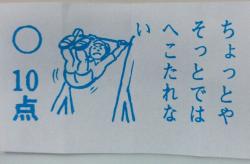 ちょっとや
そっとでは
へこたれな
い
○
10点